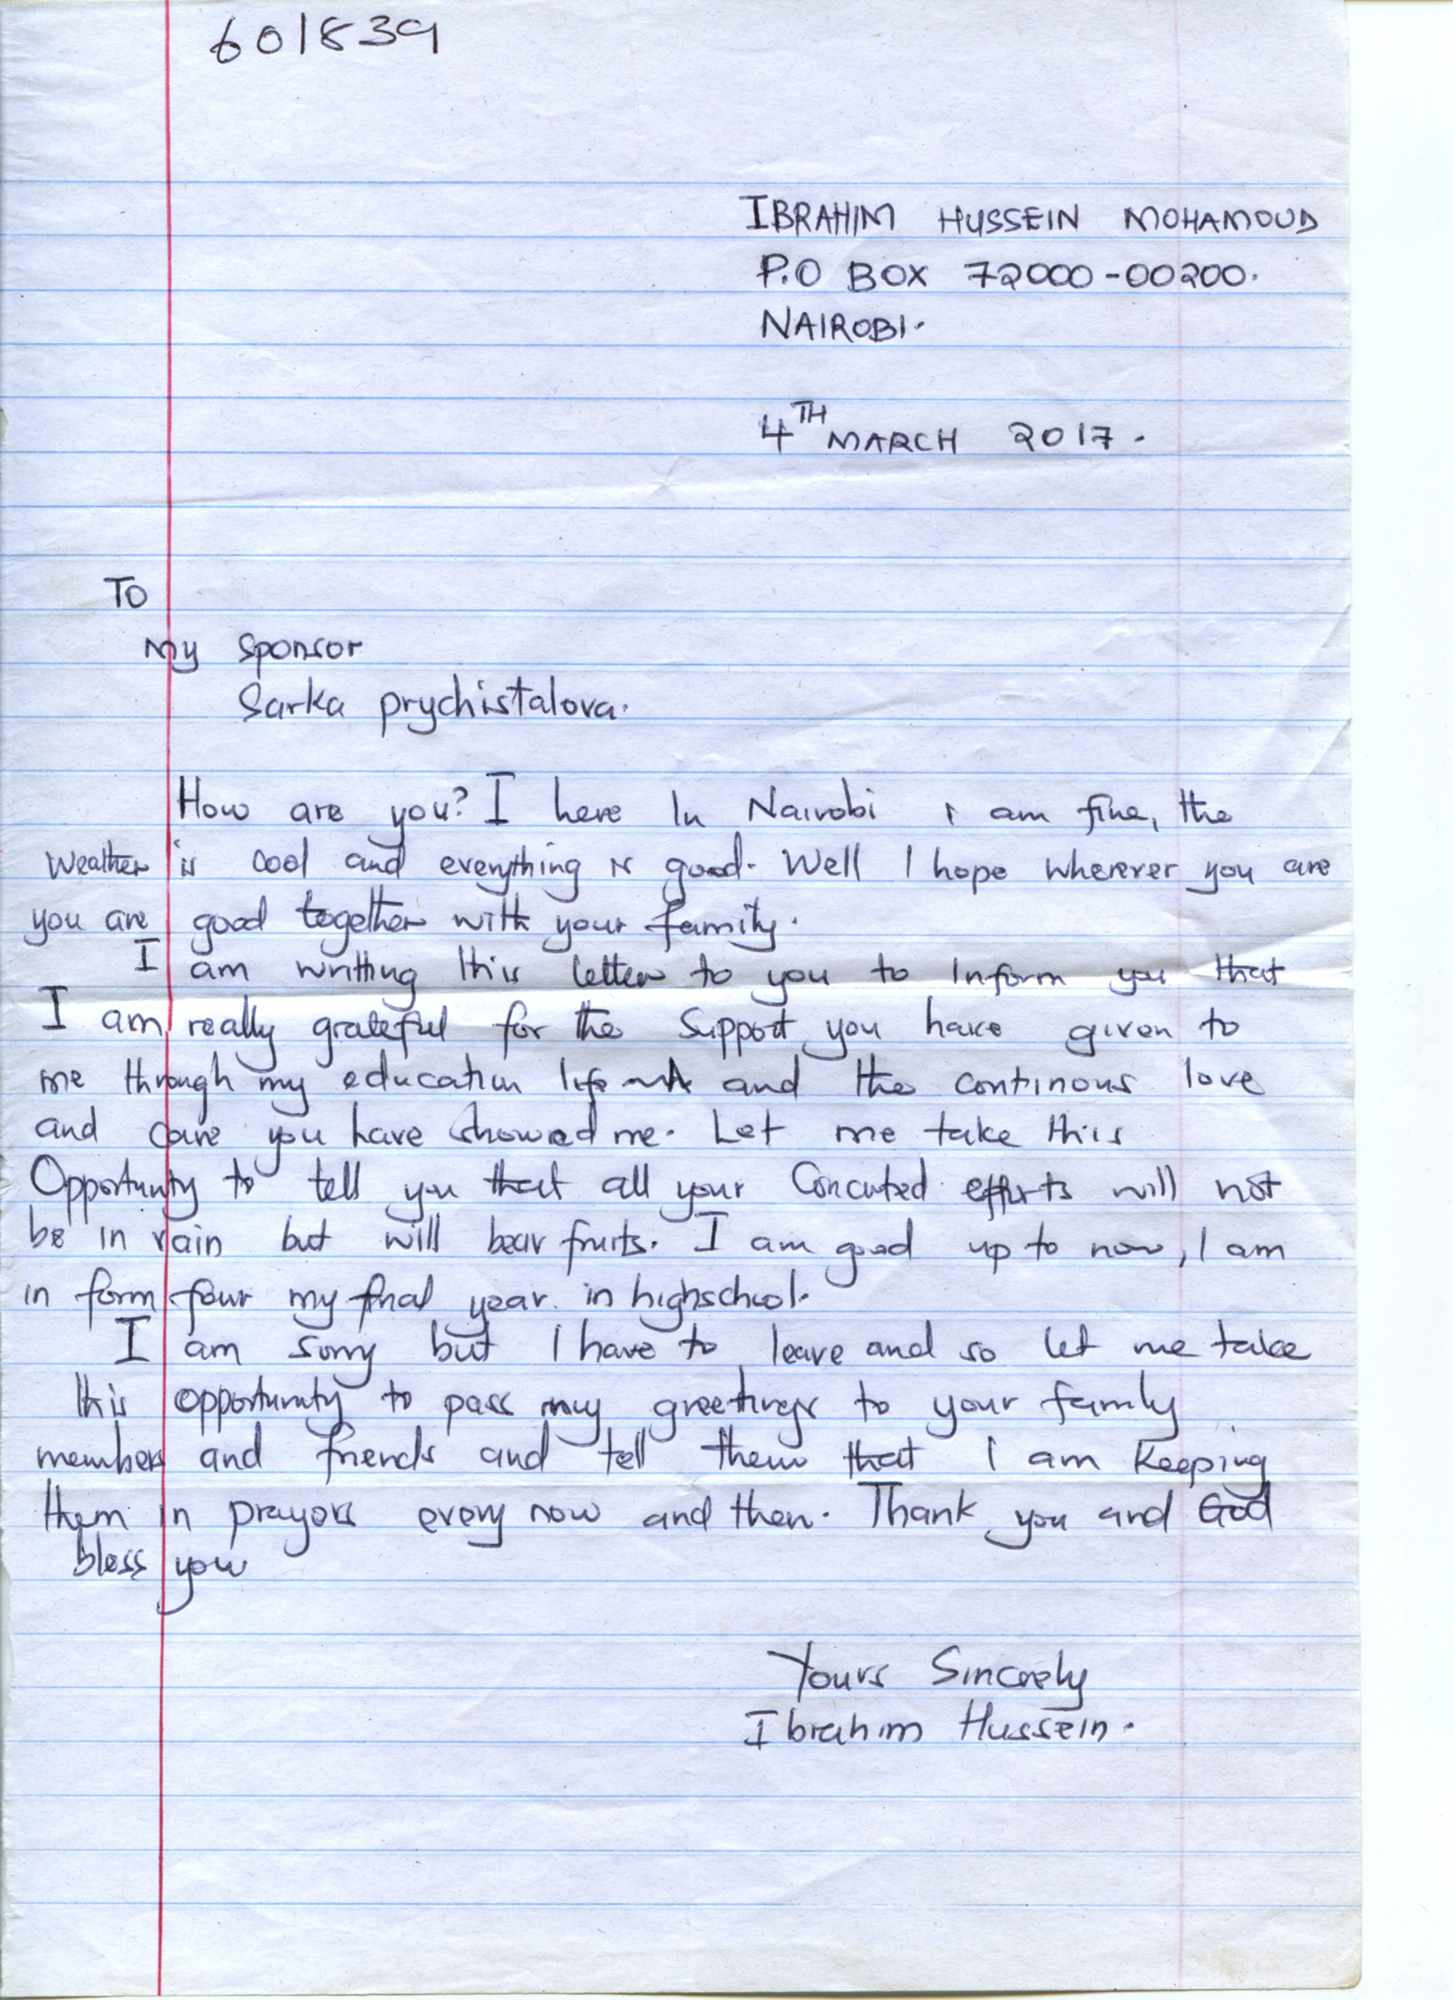 601839
IBRAHIM HUSSEIN MOHAMOUD
P.O BOX 72000-00200.
NAIROBI.
4TH MARCH 2017.
To
My Sponsor
Sarka prychistalova.
How are you? I here In Nairobi i am fine, the
Weather is cool and everything is good. Well I hope wherever you are
you are good together with your family.
I am writting this letter to you to Inform you that
I am really grateful for the Support you have given to
me through my education life and the continous love
and care you have showed me. Let me take this
Opportunity to tell you that all your Concuted efforts will not
be in vain but will bear fruits. I am good up to now, I am
in form four my final year in highschool.
I am sorry but I have to leave and so let me take
this opportunity to pass my greetings to your family
members and friends and tell them that I am Keeping
them in prayers every now and then. Thank you and God
bless you
Yours Sincerely
Ibrahim Hussein.